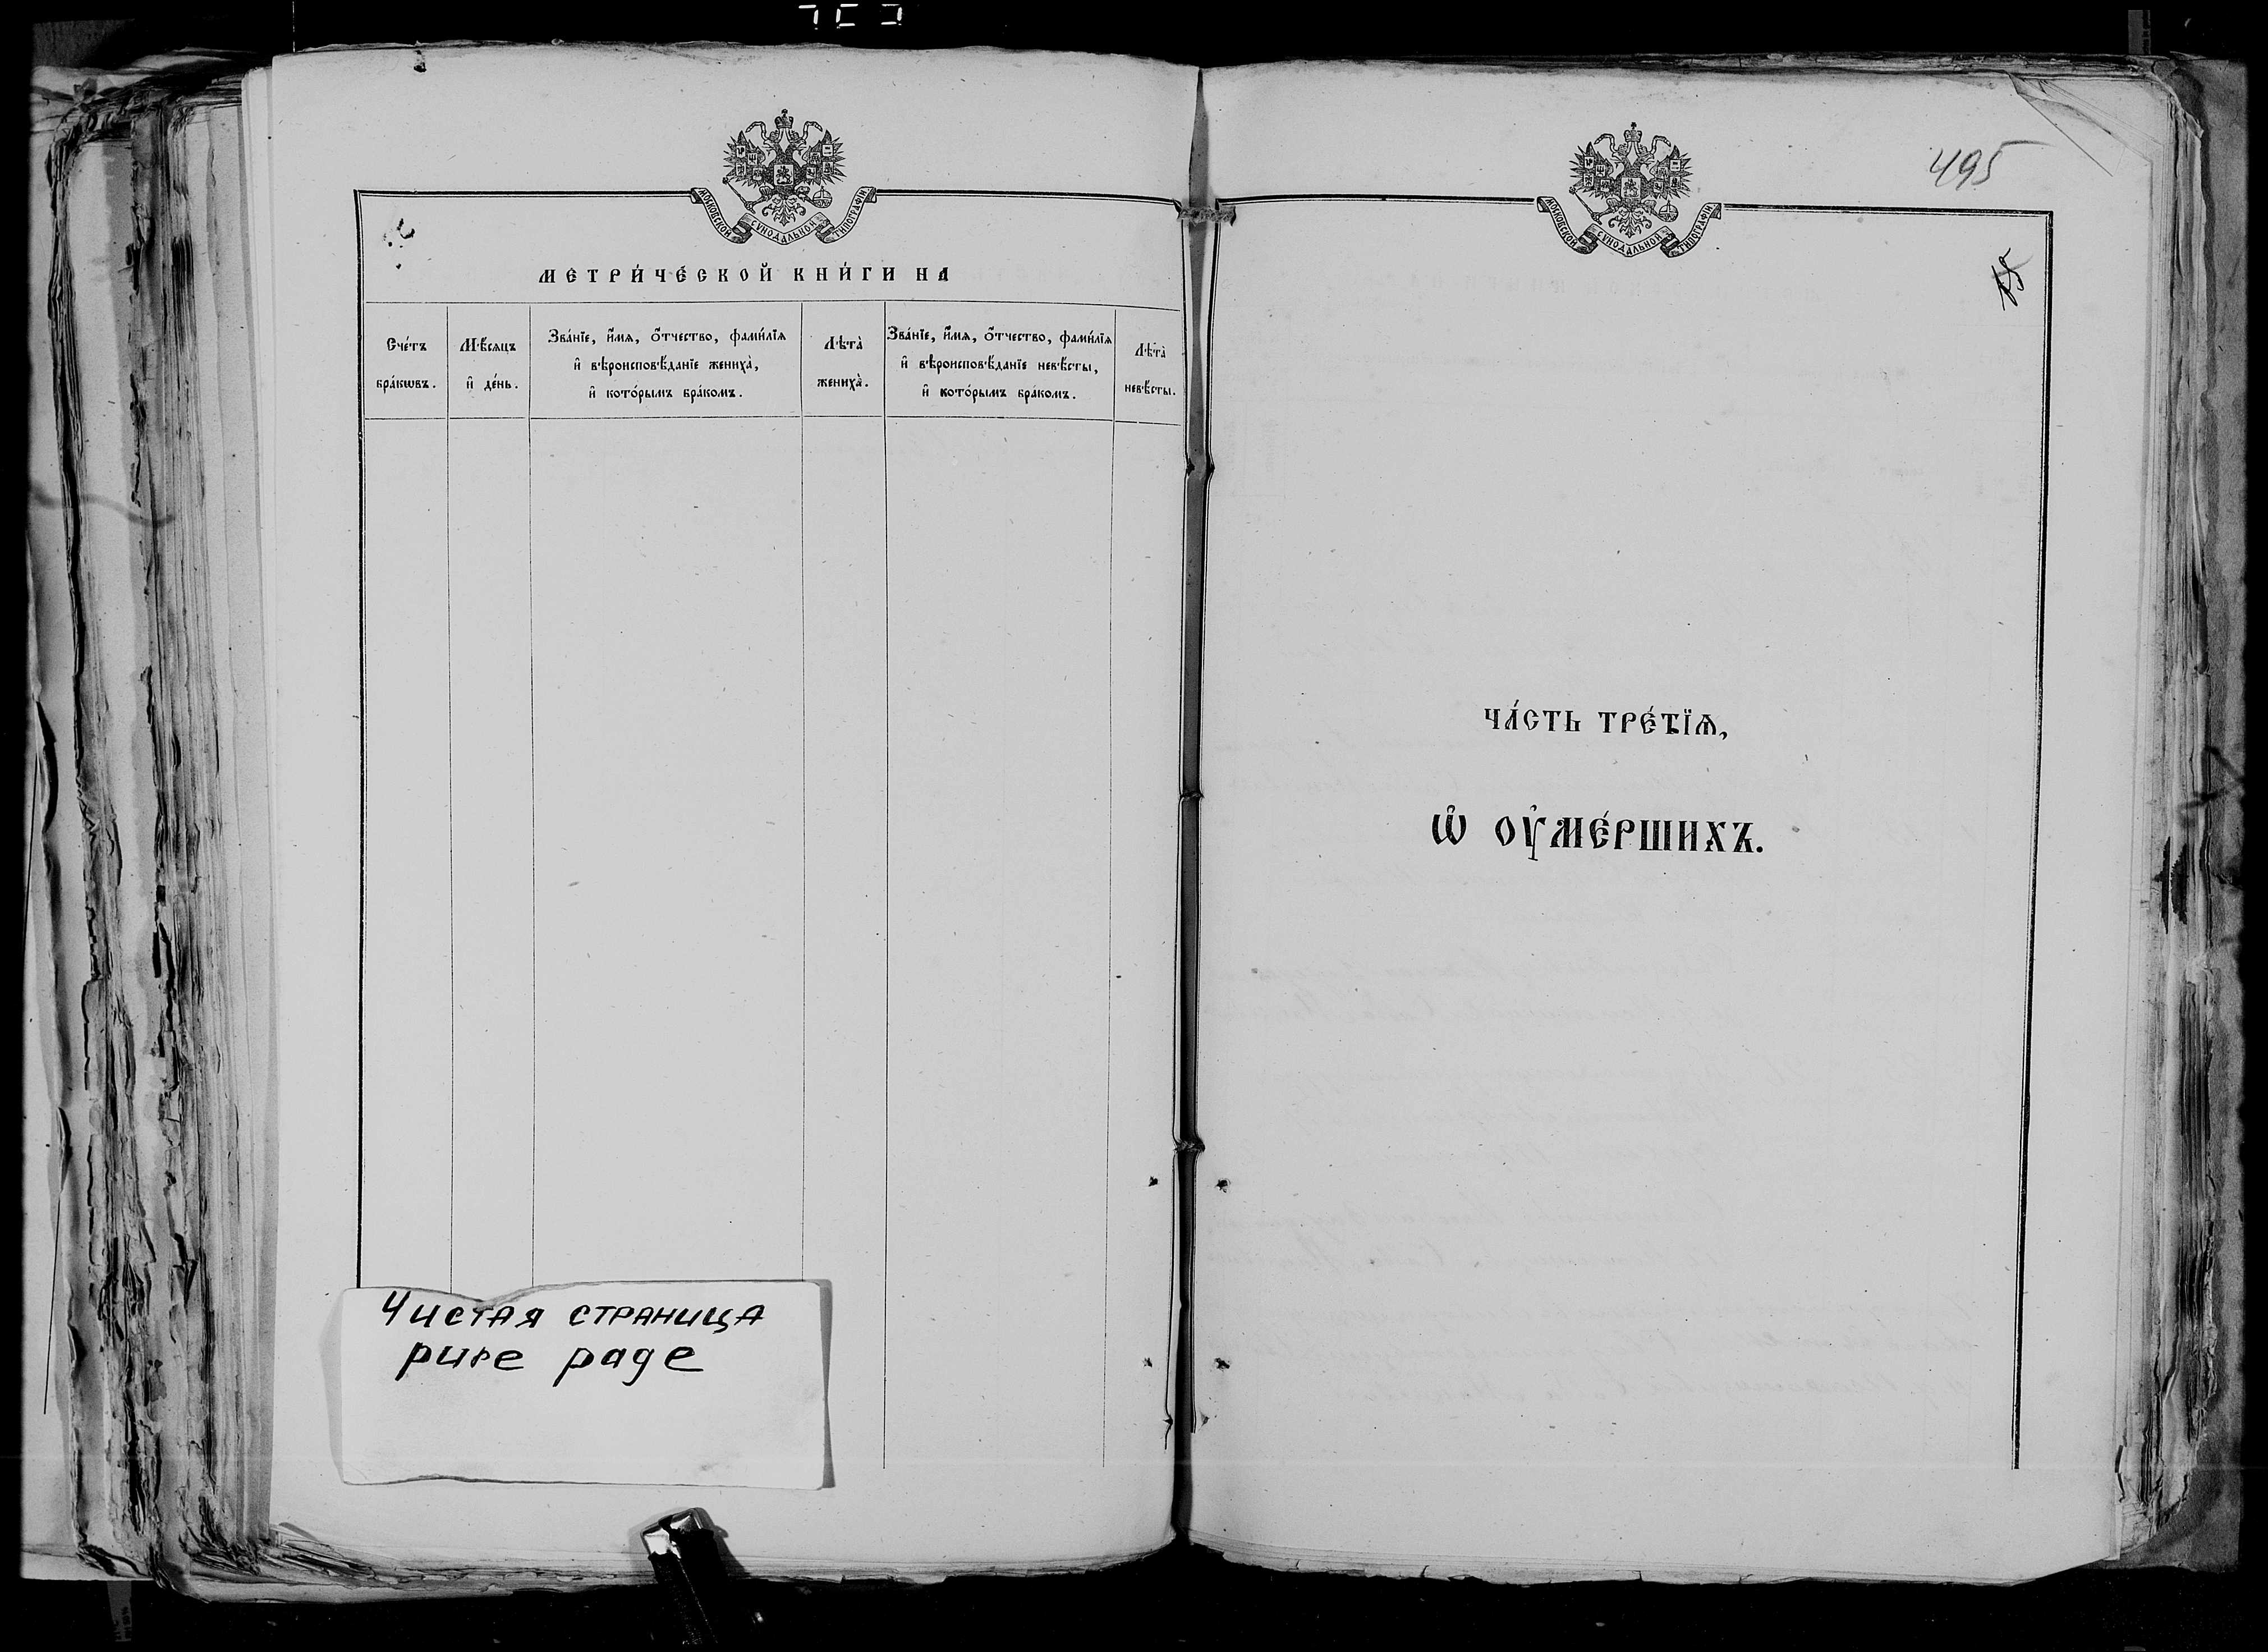 МОСКОВСКОЙ СУНОДАЛЬНОЙ ТИПОГРАФІИ
МЕТРИ́ЧЕ́СКОЙ КНИ́ГИ НА
Сче́тъ
бра́кѡвъ.
Мѣ́сяцъ
и҆ де́нь.
Зва́нїе, и҆́мя, ѻ҆́тчество, фами́лїя
и҆ вѣроисповѣ́данїе жениха̀,
и҆ кото́рымъ бра́комъ.
Лѣта̀
жениха̀.
Зва́нїе, и҆́мя, ѻ҆́тчество, фами́лїя
и҆ вѣроисповѣ́данїе невѣ́сты,
и҆ кото́рымъ бра́комъ.
Лѣта̀
невѣ́сты.
Чистая страница
pure page
МОСКОВСКОЙ СУНОДАЛЬНОЙ ТИПОГРАФІИ
495
ЧА́СТЬ ТРЕ́ТЇѦ,
Ѡ҆ ОУ҆МЕ́РШИХЪ.